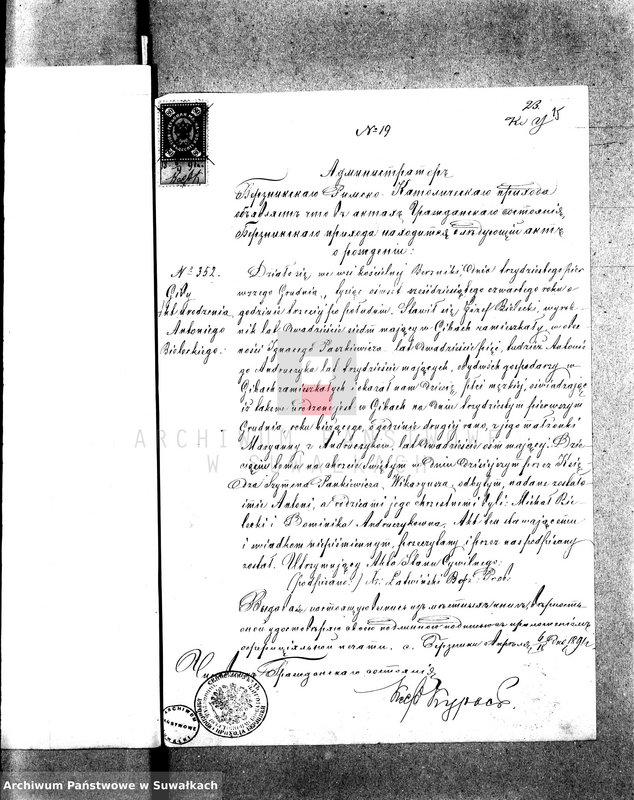 23.
№ 19
Администраторъ
Березникскаго Римско-Католическаго прихода
объявляетъ что въ актахъ Гражданскаго состоянія
Березникскаго прихода находится слѣдующій актъ
о рожденіи:
№ 352.
Giby
Akt Urodzenia
Antoniego
Bieleckiego.
Działo się we wsi kościelnej Berzniki, dnia trzydziestego pier
wszego Grudnia, tysiąc ośmset sześćdziesiątego czwartego roku o
godzinie trzeciej po południu. Stawił się Józef Bielecki, wyro
bnik lat dwadzieścia siedm mający w Gibach zamieszkały, w obec
ności Ignacego Paszkiewicza lat dwadzieścia pięć, tudzież Antonie
go Andruczyka lat trzydzieści mających, obydwóch gospodarzy w
Gibach zamieszkałych i okazał nam dziecię płci męzkiej, oświadczając
iż takowe urodzone jest w Gibach na dniu trzydziestym pierwszym
Grudnia, roku bieżącego, o godzinie drugiej rano, z jego małżonki
Maryanny z Andruczyków, lat dwadzieścia ośm mającej. Dzie
cięciu temu na chrzcie świętym w dniu dzisiejszym przez Xię
dza Szymona Pankiewicza, Wikaryusza, odbytym, nadane zostało
imie Antoni, a rodzicami jego chrzestnemi byli: Michał Bie
lecki i Dominika Andruczykowna. Akt ten stawającemu
i świadkom niepiśmiennym, przeczytany i przez nas podpisany
został. Utrzymujący Akta Stanu Cywilnego:
(podpisano:) X. Łatwiński Prob.
Выдавая настоящую выпись изъ мѣстныхъ книгъ, вѣрность
оной удостовѣряю своею подлинной подписью съ приложеніемъ
оффиціальной печати. с. Березники Апрѣля 6/18 дня 1891 г.
Гражданскаго состоянія
ARCHIWUM PAŃSTWOWE
W SUWAŁKACH
ARCHIWUM PAŃSTWOWE
Archiwum Państwowe w Suwałkach